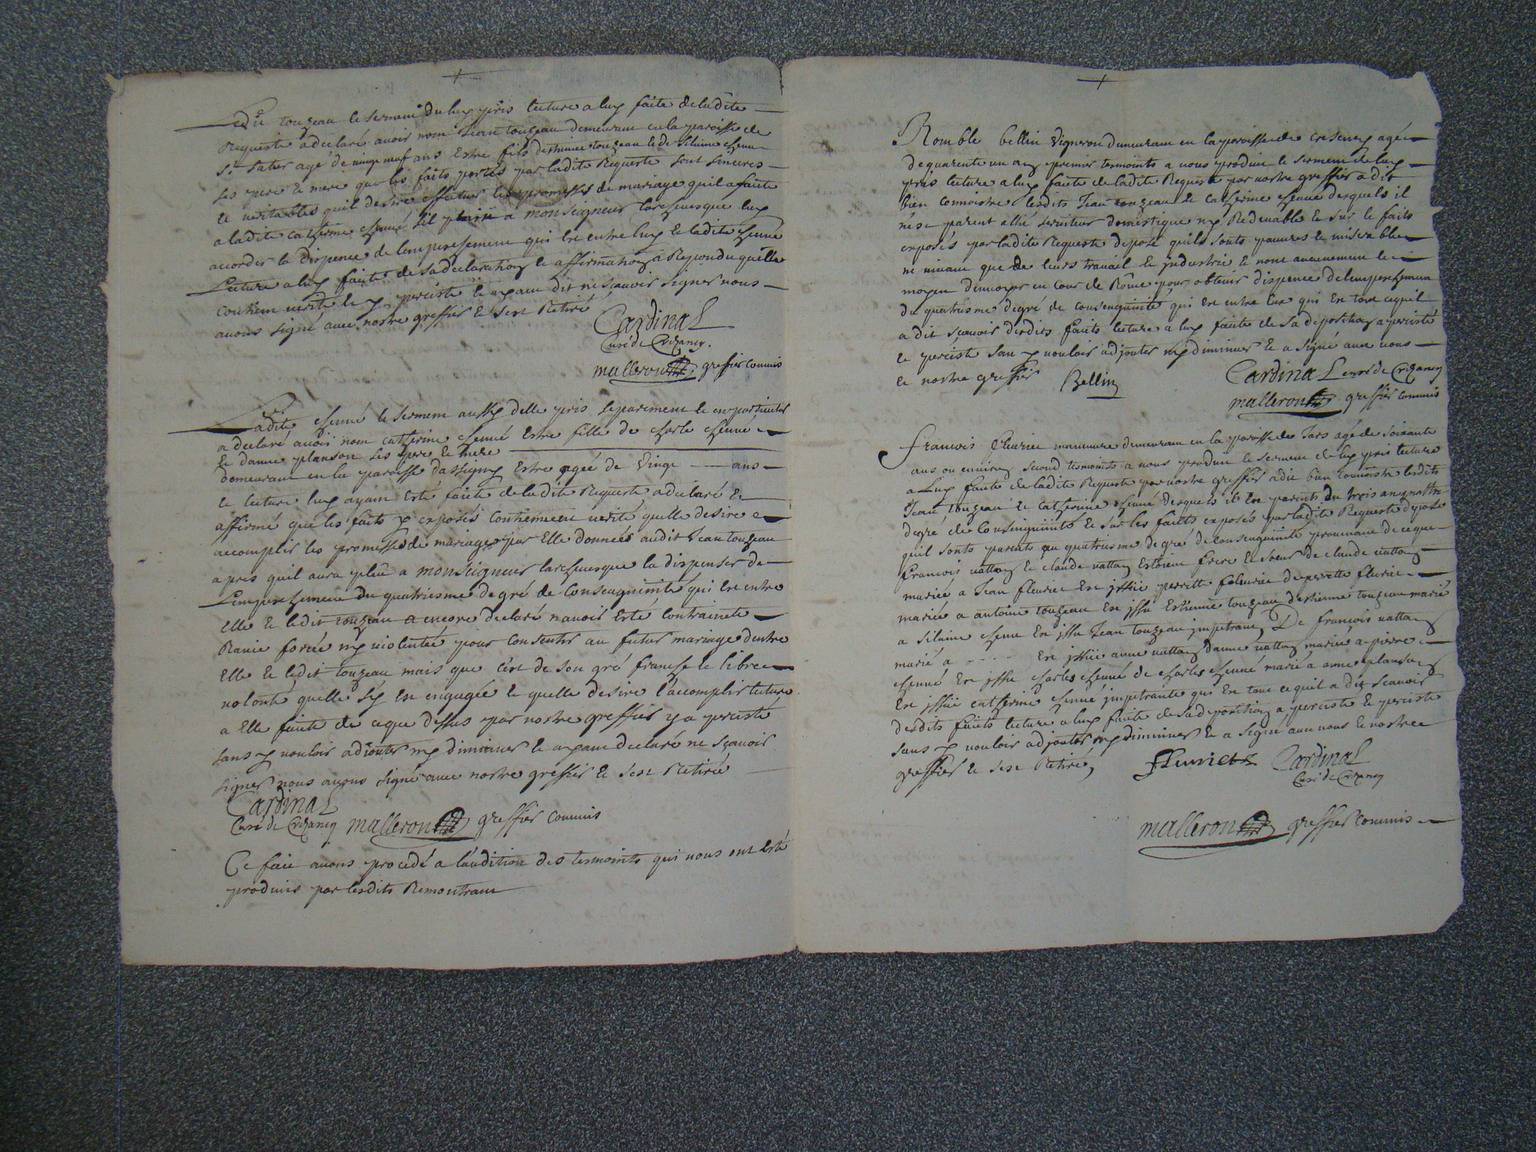 Ledit touzeau le serment du luy pris lecture a luy faite de ladite
Requeste a declaré avoir nom Jean touzeau demeurant en la paroisse de
St Satur agé de vingt neuf ans Estre fils destienne touzeau et de Silaine chenu
ses pere et mere que les faits portés par ladite Requeste sont sinceres
et veritables quil desire effectuer les promesses de mariage quil a faite
a ladite catherine chenué sil plaise a monseigneur larchevesque luy
accorder la dispence de lempeschement qui est entre luy et ladite chenué
Lecture a luy faite de sa declaration et affirmation a Repondu quelle
contient verité et y persiste et ayant dit ne scavoir signer nous
avons signé avec nostre greffier et sest Retiré
Cardinal
Curé de Crezancy.
malleron greffier commis
Ladite chenué le serment aussy delle pris separement et en particulier
a declaré avoir nom catherine chenué Estre fille de charle chenué
et danne planson ses pere et mere
demeurant en la paroisse dassigny Estre agée de vingt ans
et lecture luy ayant esté faite de ladite Requeste a declaré et
affirmé que les faits y exposés contiennent verité quelle desire
accomplir les promesses de mariage par Elle données audit Jean touzeau
apres quil aura plue a monseigneur larchevesque la dispenser de
Lempeschement du quatriesme degré de Consanguinité qui est entre
Elle et ledit touzeau a encore declaré navoir Esté contrainte
Ravie forcée ny violentée pour consentir au futur mariage dentre
Elle et ledit touzeau mais que cest de son gré franche et libre
volonté quelle sy est engagée et quelle desire laccomplir lecture
a Elle faite de ce que dessus par nostre greffier y a persisté
sans y vouloir adjouter ny diminuer et ayant declaré ne scavoir
signer nous avons signé avec nostre greffier et sest Retirée
Cardinal
Curé de Crezancy malleron greffier commis
Ce fait avons procedé a laudition des tesmoints qui nous ont Esté
produits par lesdits Remontrant
Romble bellin vigneron demeurant en la paroisse de crezancy agé
de quarente un an premier tesmoints a nous produit le serment de luy
pris lecture a luy faite de ladite Requeste par nostre greffier a dit
bien connoistre lesdits Jean touzeau et catherine chenué desquels il
nest parent allié serviteur domestique ny Redevable et sur le faits
exposés par ladite Requeste depose quils sonts pauvres et miserable
ne vivant que de leurs travail et industrie et nont aucunement le
moyen denvoyer en cour de Rome pour obtenir dispence de lempeschement
du quatriesme degré de consanguinité qui est entre Eux qui est tout ce quil
a dit scavoir desdits faits lecture a luy faite de sa deposition a persisté
et persiste sans y vouloir adjouter ny diminuer et a signé avec nous
et nostre greffier Bellin Cardinal curé de Crezancy
malleron greffier commis
francois fleurie manoeuvre demeurant en la paroisse de Jars agé de soixante
ans ou environ second tesmoints a nous produit le serment de luy pris lecture
a Luy faite de ladite Requeste par nostre greffier a dit bien connoistre lesdits
Jean touzeau et catherine chenué desquels il est parents du trois au quatre
degré de Consanguinité et sur les faits exposés par ladite Requeste depose
quil sonts parents au quatriesme degré de consanguinité provenant de ce que
francois nattay et claude nattay Estoient frere et soeur de claude nattay
mariée a Jean fleurie est issüe perette fleurie de perette fleurie
mariée a antoine touzeau est issu Estienne touzeau destienne touzeau marié
a silaine chenu est issu Jean touzeau impetrant, De francois nattay
marié a .... est issüe anne nattay danne nattay mariée a pierre
chenué est issu charles chenué de charles chenué marié a anne planson
est issüe catherine chenué impetrante qui est tout ce quil a dit scavoir
desdits faits lecture a luy faite de sa deposition a persisté et persiste
sans y vouloir adjouter ny diminuer et a signé avec nous et nostre
greffier et sest Retiré, Fleuriet Cardinal
Curé de Crezancy
malleron greffier commis